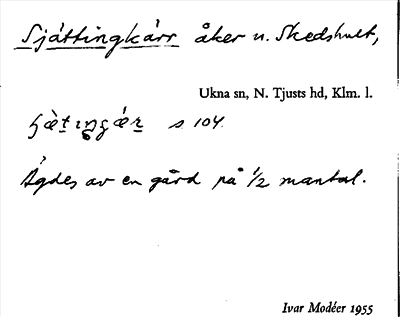 Sjättingkärr åker u. Skedshult,
Ukna sn, N. Tjusts hd, Klm. l.
s 104.
Ägdes av en gård på 1/2 mantal.
Ivar Modéer 1955